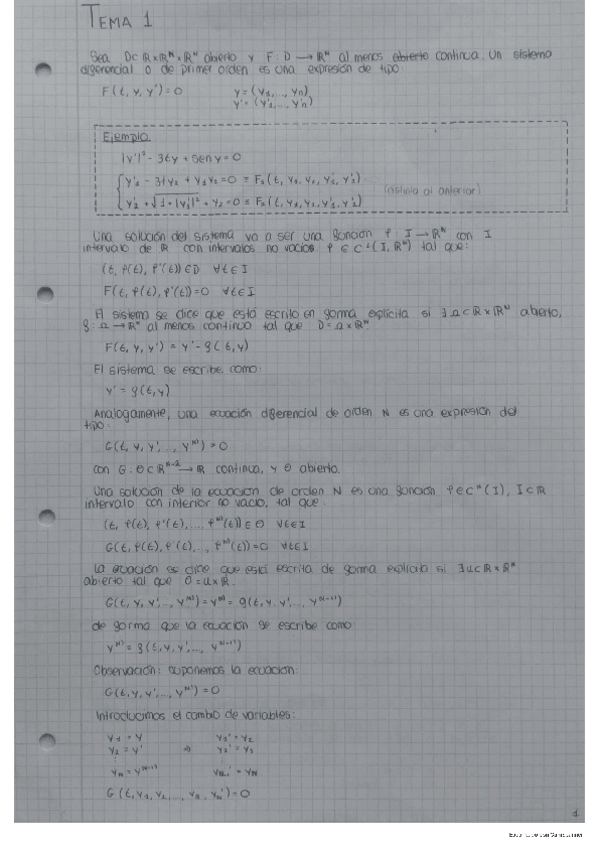 TEMA 1
Sea D⊂ℝ×ℝᴺ×ℝᴺ abierto y F: D → ℝᴺ al menos abierto continua. Un sistema
diferencial o de primer orden es una expresión de tipo:
F(t, y, y')=0 y=(y₁,..., yₙ)
y'=(y'₁,..., y'ₙ)
Ejemplo
|y'|² - 3ty + sen y = 0
y'₁ - 3ty₂ + y₁y₂ = 0 ≡ F₁(t, y₁, y₂, y'₁, y'₂)
(distinta al anterior)
y'₂ + √1+|y'₁|² + y₂ = 0 ≡ F₂(t, y₁, y₂, y'₁, y'₂)
Una solución del sistema va a ser una función φ: I → ℝᴺ con I
intervalo de ℝ con intervalos no vacíos φ ∈ C¹(I, ℝᴺ) tal que:
(t, φ(t), φ'(t)) ∈ D ∀t∈I
F(t, φ(t), φ'(t))=0 ∀t∈I
El sistema se dice que está escrito en forma explícita si ∃ Ω⊂ℝ×ℝᴺ abierto,
f: Ω → ℝᴺ al menos continuo tal que D=Ω×ℝᴺ
F(t, y, y') = y' - f(t, y)
El sistema se escribe como:
y' = f(t, y)
Analogamente, una ecuación diferencial de orden N es una expresión del
tipo:
G(t, y, y',..., y⁽ᴺ⁾) = 0
con G: Θ⊂ℝᴺ⁺² → ℝ continua, y Θ abierto.
Una solución de la ecuación de orden N es una función φ∈Cᴺ(I), I⊂ℝ
intervalo con interior no vacío, tal que:
(t, φ(t), φ'(t),..., φ⁽ᴺ⁾(t)) ∈ Θ ∀t∈I
G(t, φ(t), φ'(t),..., φ⁽ᴺ⁾(t))=0 ∀t∈I
La ecuación se dice que está escrita de forma explícita si ∃ u⊂ℝ×ℝᴺ
abierto tal que Θ=u×ℝ.
G(t, y, y',..., y⁽ᴺ⁾) = y⁽ᴺ⁾ = g(t, y, y',..., y⁽ᴺ⁻¹⁾)
de forma que la ecuación se escribe como
y⁽ᴺ⁾ = g(t, y, y',..., y⁽ᴺ⁻¹⁾)
Observación: suponemos la ecuación:
G(t, y, y',..., y⁽ᴺ⁾)=0
Introducimos el cambio de variables:
y₁ = y y₁' = y₂
y₂ = y' ⇒ y₂' = y₃
⋮ ⋮
yₙ = y⁽ᴺ⁻¹⁾ yₙ₋₁' = yₙ
G(t, y₁, y₂,..., yₙ, yₙ')=0
1